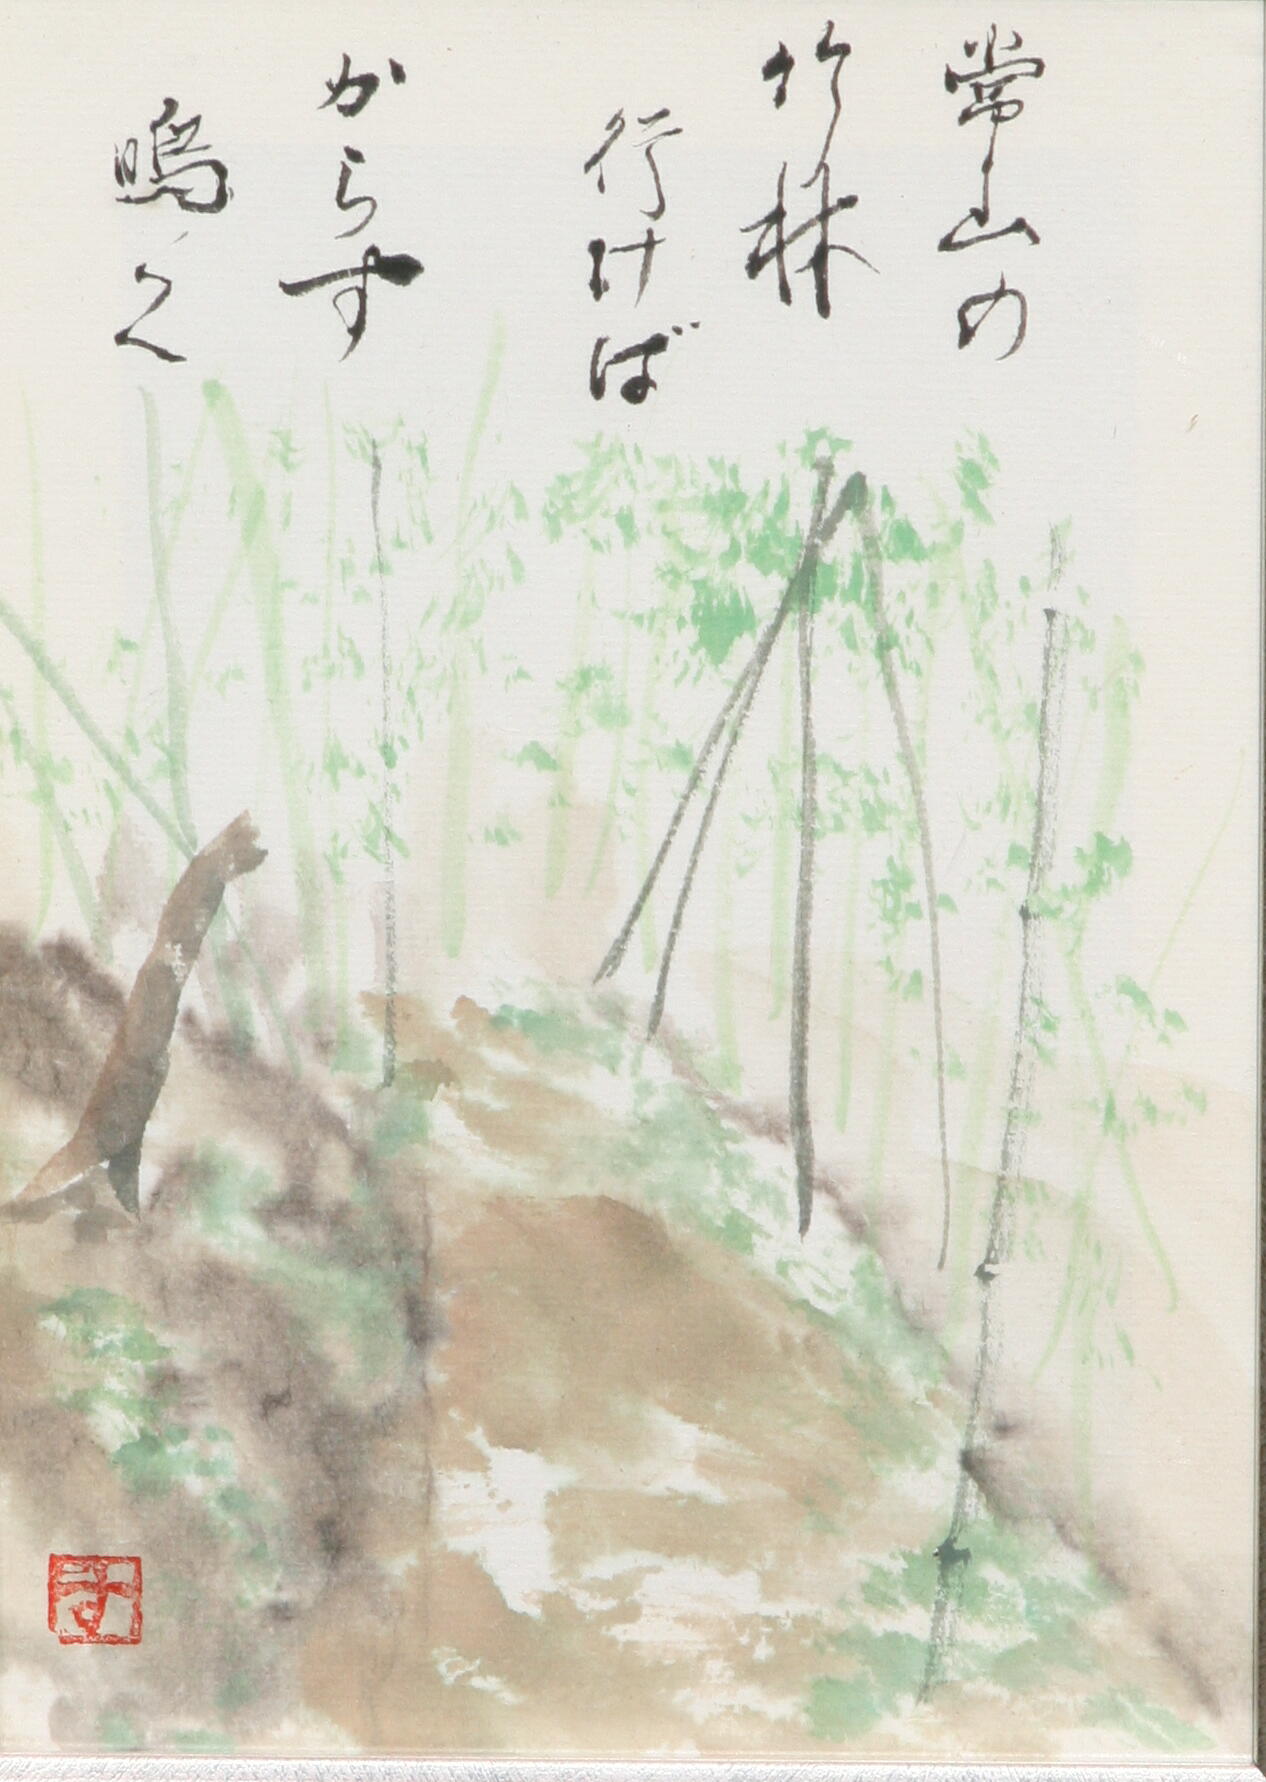 常山の
竹林
行けば
からす
鳴く
す